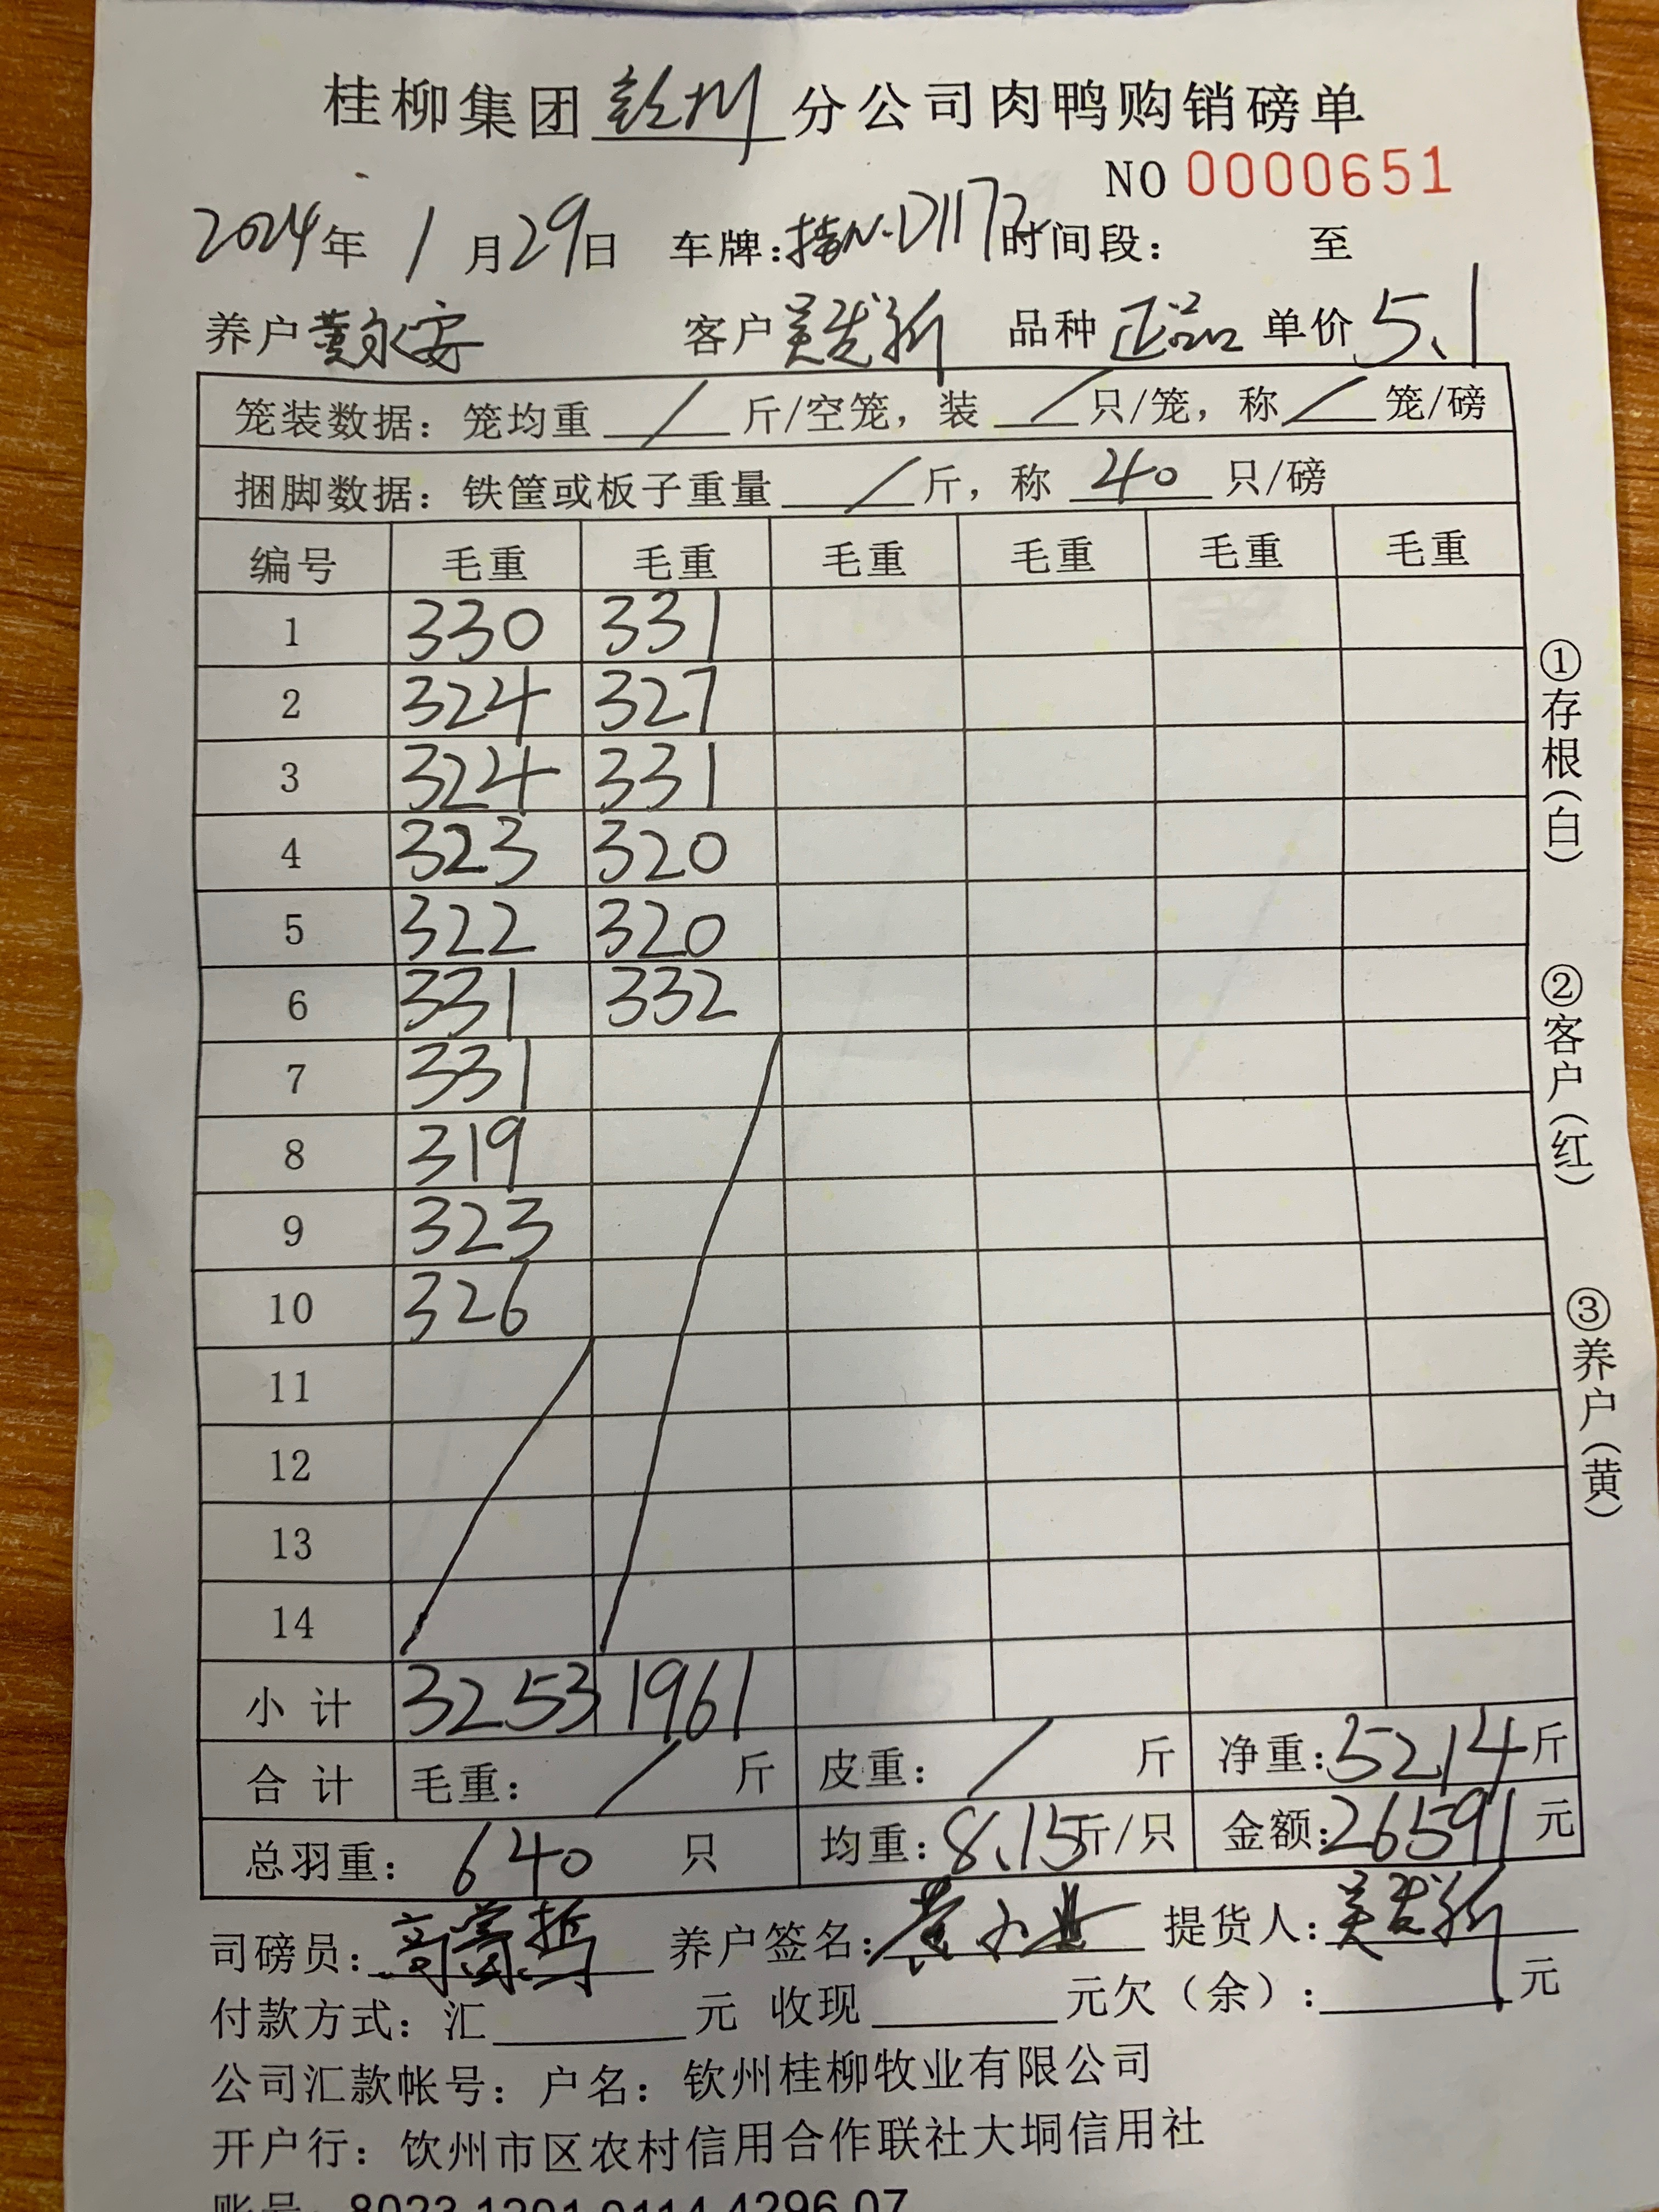 桂柳集团 钦州 分公司肉鸭购销磅单
NO 0000651
2024年 1 月29日 车牌:桂N·D1172 时间段: 至
养户 黄永安 客户 吴发新 品种 正品 单价 5.1
笼装数据:笼均重 / 斤/空笼,装 / 只/笼,称 / 笼/磅
捆脚数据:铁筐或板子重量 / 斤,称 40 只/磅
编号 毛重 毛重 毛重 毛重 毛重 毛重
1 330 331
2 324 327
3 324 331
4 323 320
5 322 320
6 331 332
7 331
8 319
9 323
10 326
11
12
13
14
小计 3253 1961
合计 毛重: / 斤 皮重: / 斤 净重:5214斤
总羽重: 640 只 均重:8.15斤/只 金额:26591元
司磅员: 养户签名:黄小业 提货人:吴发新
付款方式:汇 元 收现 元欠(余): 元
公司汇款帐号:户名:钦州桂柳牧业有限公司
开户行:钦州市区农村信用合作联社大垌信用社
账号:8023 1201 0114 4296 07
①存根(白)
②客户(红)
③养户(黄)